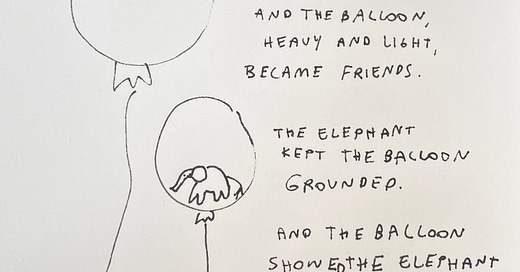 AND THE BALLOON,
HEAVY AND LIGHT,
BECAME FRIENDS.
THE ELEPHANT
KEPT THE BALLOON
GROUNDED.
AND THE BALLOON
SHOWED THE ELEPHANT